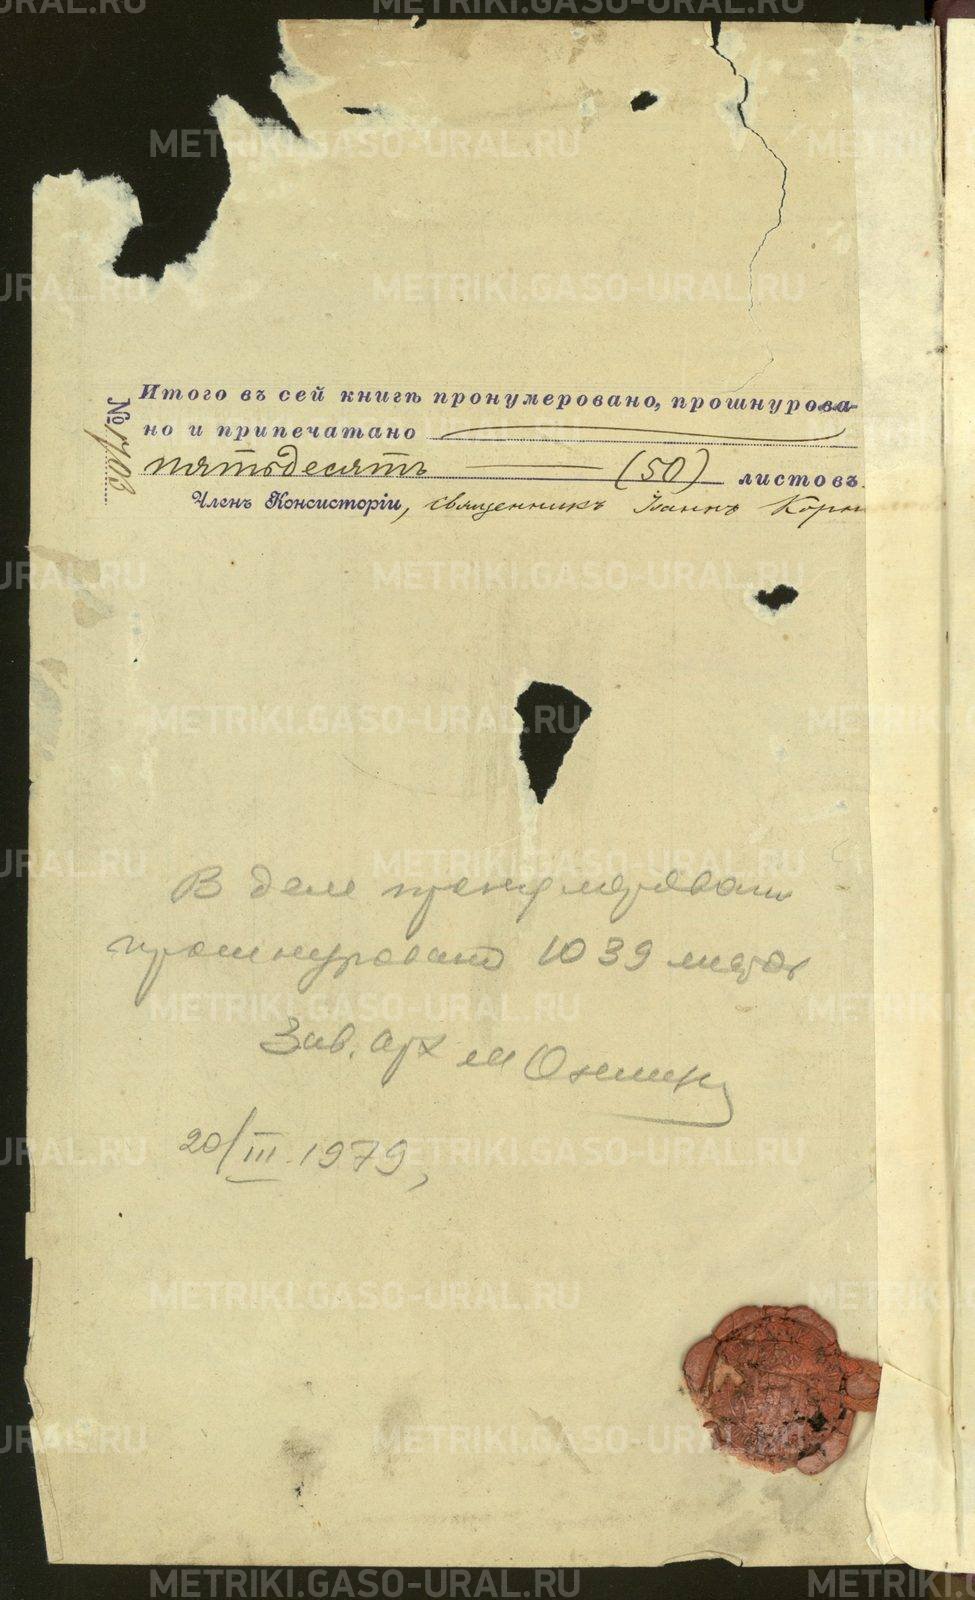 Итого въ сей книгѣ пронумеровано, прошнурова-
но и припечатано
пятьдесятъ (50) листовъ.
Членъ Консисторіи, священникъ Іоаннъ Корн
№ 1703
В деле пронумеровано
прошнуровано 1039 листов
Зав. арх
20/III 1979,
METRIKI.GASO-URAL.RU